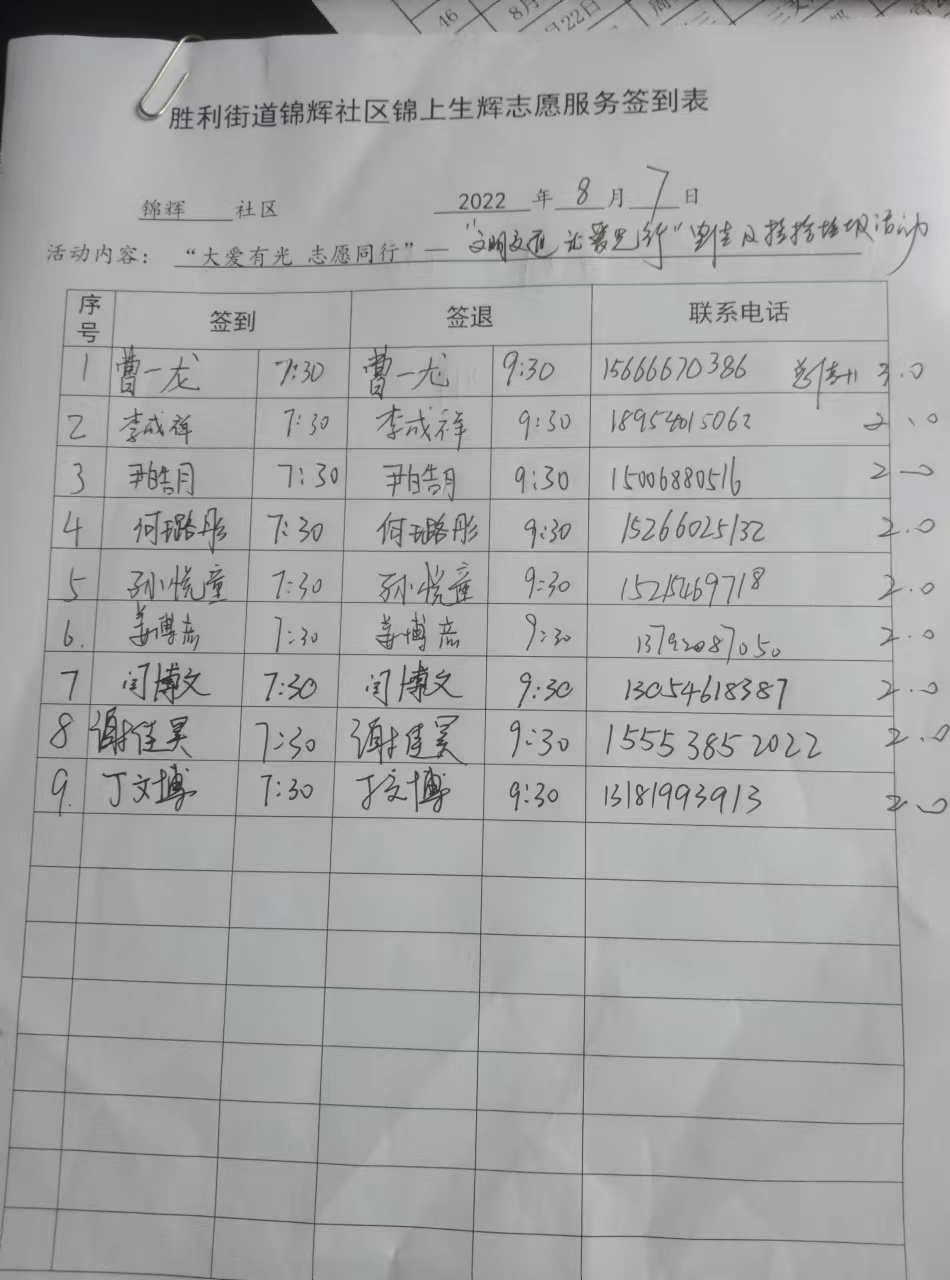 46 8月
月22日
胜利街道锦辉社区锦上生辉志愿服务签到表
锦辉 社区 2022 年 8 月 7 日
活动内容：“大爱有光 志愿同行”—“文明交通 让爱先行”宣传及捡拾垃圾活动
序号 签到 签退 联系电话
1 曹一龙 7:30 曹一龙 9:30 15666670386 3.0
2 李成祥 7:30 李成祥 9:30 18954015062 2.0
3 尹皓月 7:30 尹皓月 9:30 15006880516 2.0
4 何璐彤 7:30 何璐彤 9:30 15266025132 2.0
5 孙悦童 7:30 孙悦童 9:30 15215469718 2.0
6. 姜博志 7:30 姜博志 9:30 13792087050 2.0
7 闫博文 7:30 闫博文 9:30 13054618387 2.0
8 谢佳昊 7:30 谢佳昊 9:30 15553852022 2.0
9. 丁文博 7:30 丁文博 9:30 13181993913 2.0